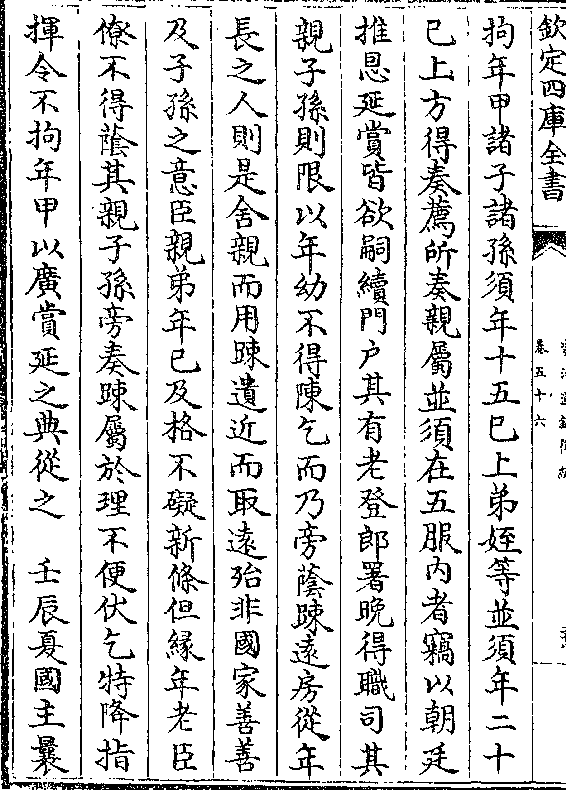 欽定四庫全書
卷五十六
拘年甲諸子諸孫須年十五已上弟姪等並須年二十
已上方得奏薦所奏親屬並須在五服內者竊以朝廷
推恩延賞皆欲嗣續門户其有老登郎署晚得職司其
親子孫則限以年幼不得陳乞而乃旁蔭踈逺房從年
長之人則是舍親而用踈遺近而取逺殆非國家善善
及子孫之意臣親弟年已及格不礙新條但縁年老臣
僚不得蔭其親子孫旁奏踈屬於理不便伏乞特降指
揮令不拘年甲以廣賞延之典從之　壬辰夏國主曩